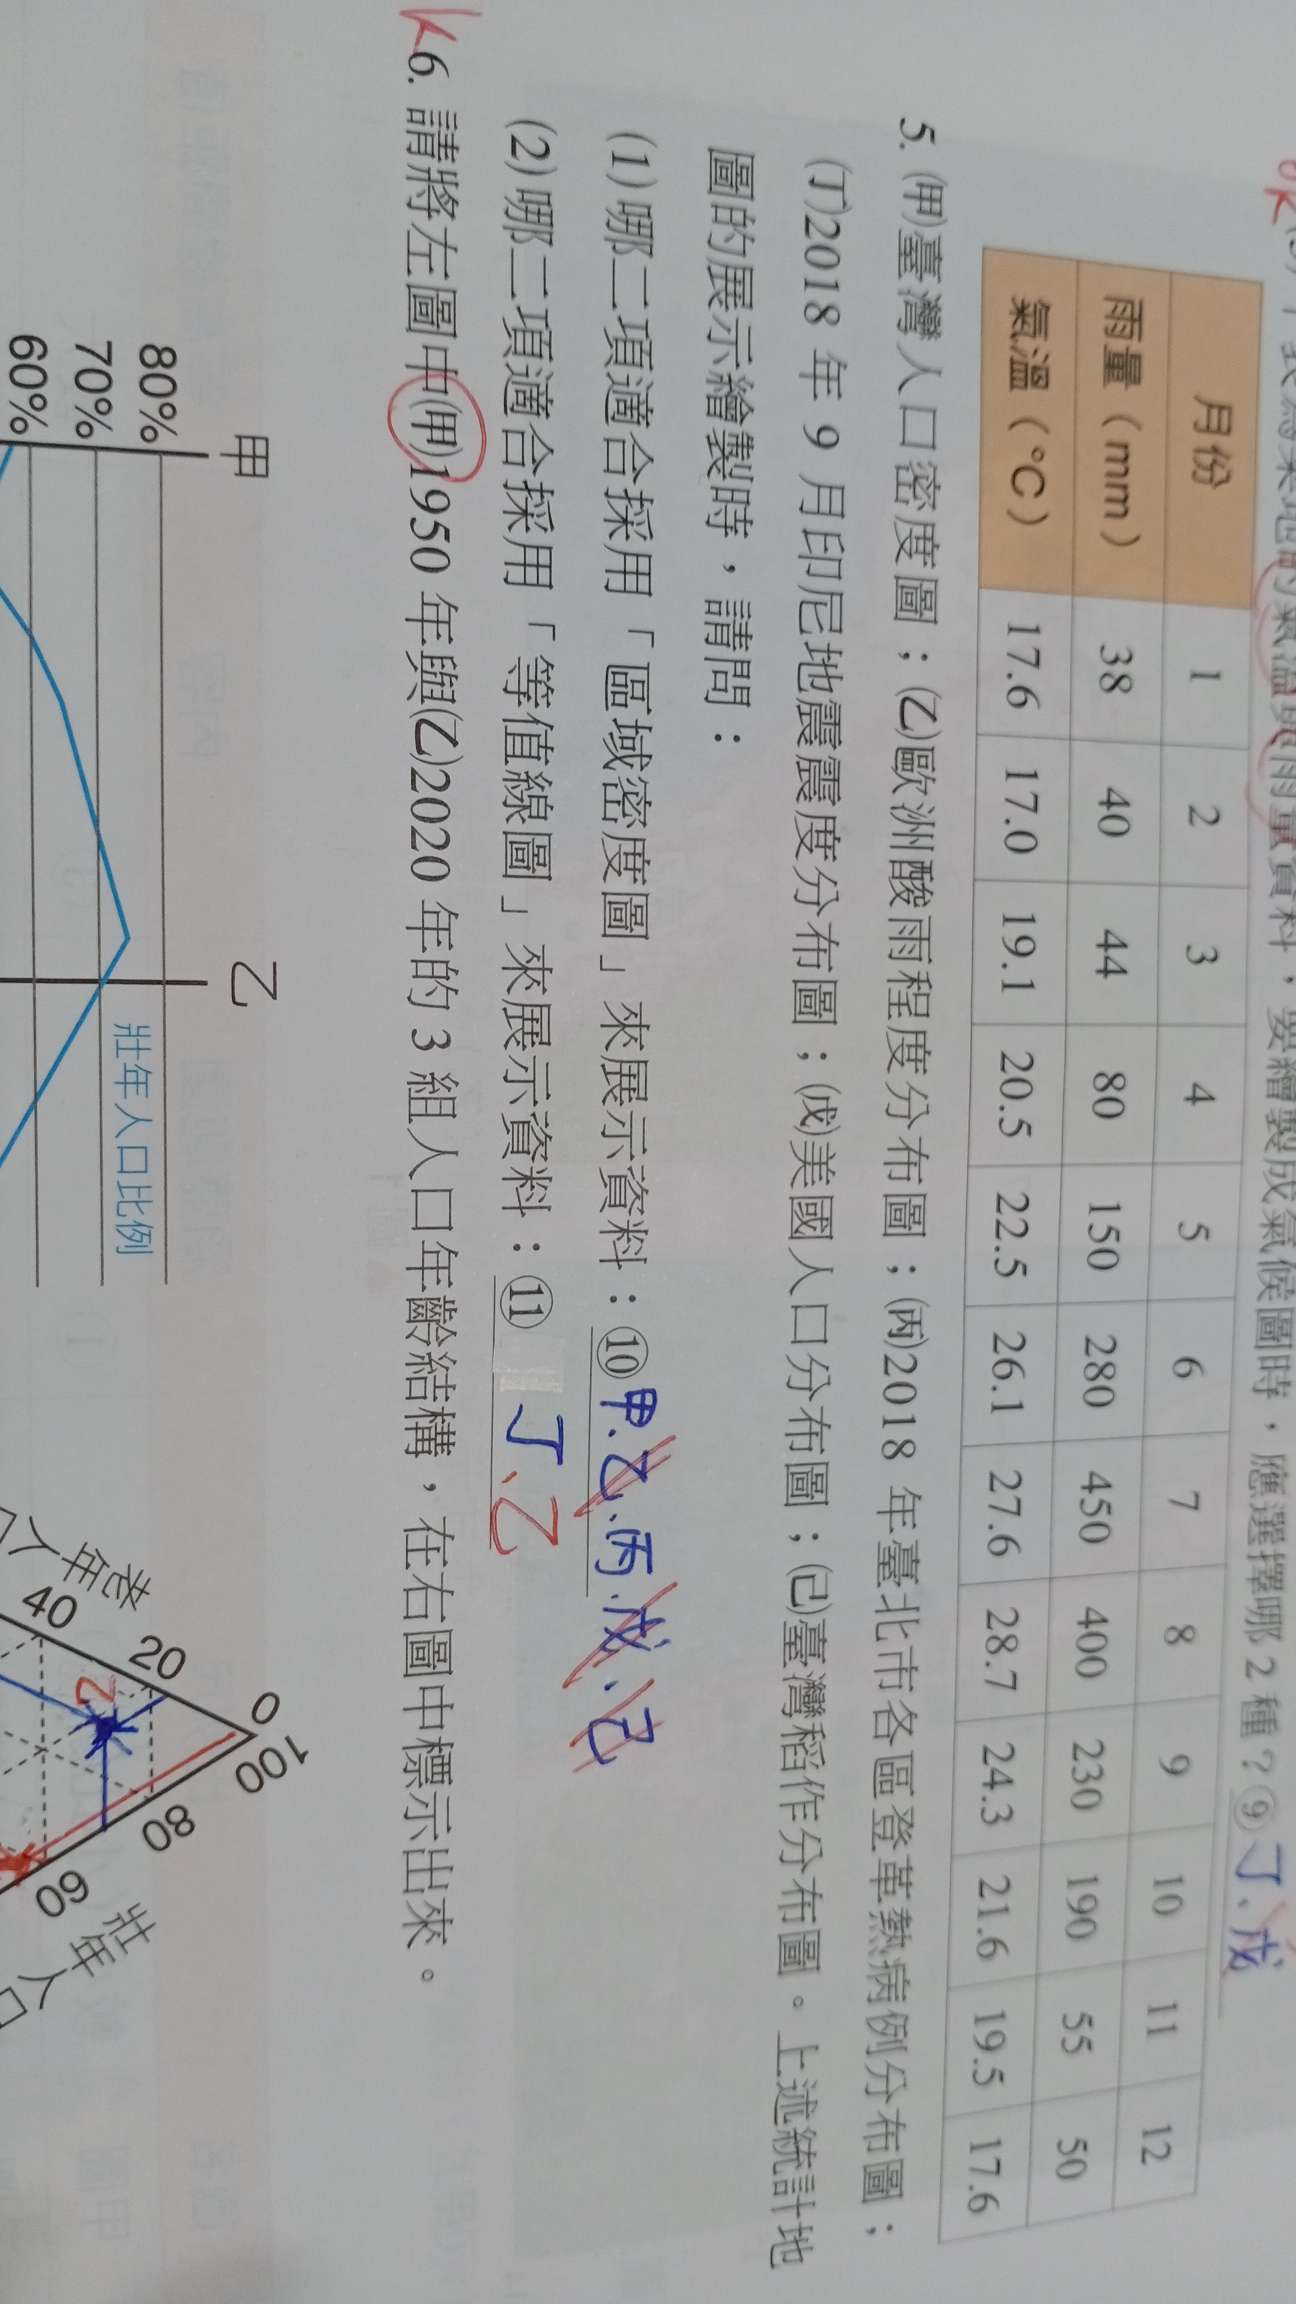 月份 1 2 3 4 5 6 7 8 9 10 11 12
雨量(mm) 38 40 44 80 150 280 450 400 230 190 55 50
氣溫(°C) 17.6 17.0 19.1 20.5 22.5 26.1 27.6 28.7 24.3 21.6 19.5 17.6
5. (甲)臺灣人口密度圖；(乙)歐洲酸雨程度分布圖；(丙)2018 年臺北市各區登革熱病例分布圖；
(丁)2018 年 9 月印尼地震震度分布圖；(戊)美國人口分布圖；(已)臺灣稻作分布圖。上述統計地
圖的展示繪製時，請問：
(1) 哪二項適合採用「區域密度圖」來展示資料：⑩甲、乙、丙、戊、己
(2) 哪二項適合採用「等值線圖」來展示資料：⑪ 丁、乙
6. 請將左圖中(甲)1950 年與(乙)2020 年的 3 組人口年齡結構，在右圖中標示出來。
甲 乙
80%
70%
60%
壯年人口比例
0 100
20 80
40 60
老年人口
壯年人口
乙
要繪製成氣候圖時，應選擇哪 2 種？⑨丁、戊